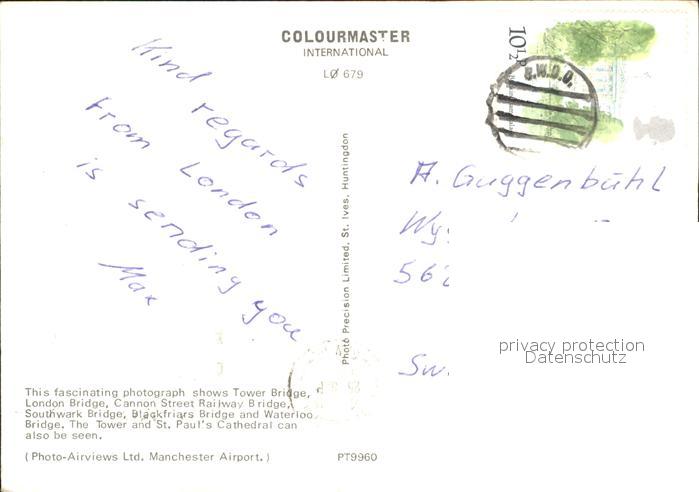 COLOURMASTER
INTERNATIONAL
LØ 679
10½P
S.W.D.O.
Kind regards
from London
is sending you
Max
Photo Precision Limited, St. Ives, Huntingdon
A. Guggenbühl
Wy
562
Sw.
privacy protection
Datenschutz
This fascinating photograph shows Tower Bridge,
London Bridge, Cannon Street Railway Bridge,
Southwark Bridge, Blackfriars Bridge and Waterloo
Bridge. The Tower and St. Paul's Cathedral can
also be seen.
(Photo-Airviews Ltd. Manchester Airport.)
PT9960